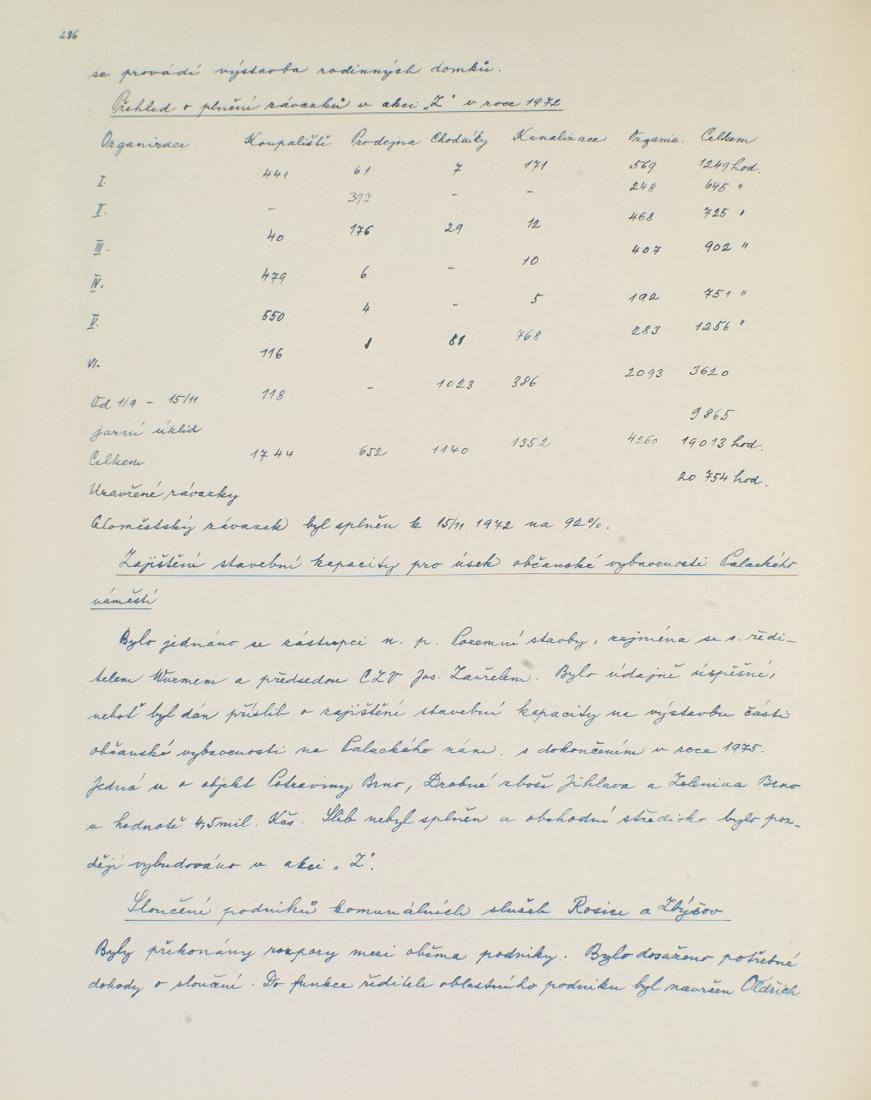 286
se provádí výstavba rodinných domků.
Přehled o plnění závazků v akci „Z" v roce 1972
Organizace Koupaliště Prodejna Chodníky Kanalizace Organiz. Celkem
I. 441 61 7 171 569 1249 hod.
II. - 397 - - 248 645 "
III. 40 176 29 12 468 725 "
IV. 479 6 - 10 407 902 "
V. 550 4 - 5 192 751 "
VI. 116 8 81 768 283 1256 "
Od 1/9 - 15/11 118 - 1023 386 2093 3620
jarní úklid 9865
Celkem 1744 652 1140 1352 4260 19013 hod.
Uzavřené závazky 20 754 hod.
Celoměstský závazek byl splněn k 15/11 1972 na 92%.
Zajištění stavební kapacity pro úsek občanské vybavenosti Palackého
náměstí
Bylo jednáno se zástupci n. p. Pozemní stavby, zejména se s. ředi-
telem Wurmem a předsedou CZV Jos. Zavřelem. Bylo údajně úspěšné,
neboť byl dán příslib o zajištění stavební kapacity na výstavbu části
občanské vybavenosti na Palackého nám. s dokončením v roce 1975.
Jedná se o objekt Potraviny Brno, Drobné zboží Jihlava a Zelenina Brno
v hodnotě 4,5 mil. Kčs. Slib nebyl splněn a obchodní středisko bylo poz-
ději vybudováno v akci „Z".
Sloučení podniků komunálních služeb Rosice a Zbýšov
Byly překonány rozpory mezi oběma podniky. Bylo dosaženo potřebné
dohody o sloučení. Do funkce ředitele oblastního podniku byl navržen Oldřich